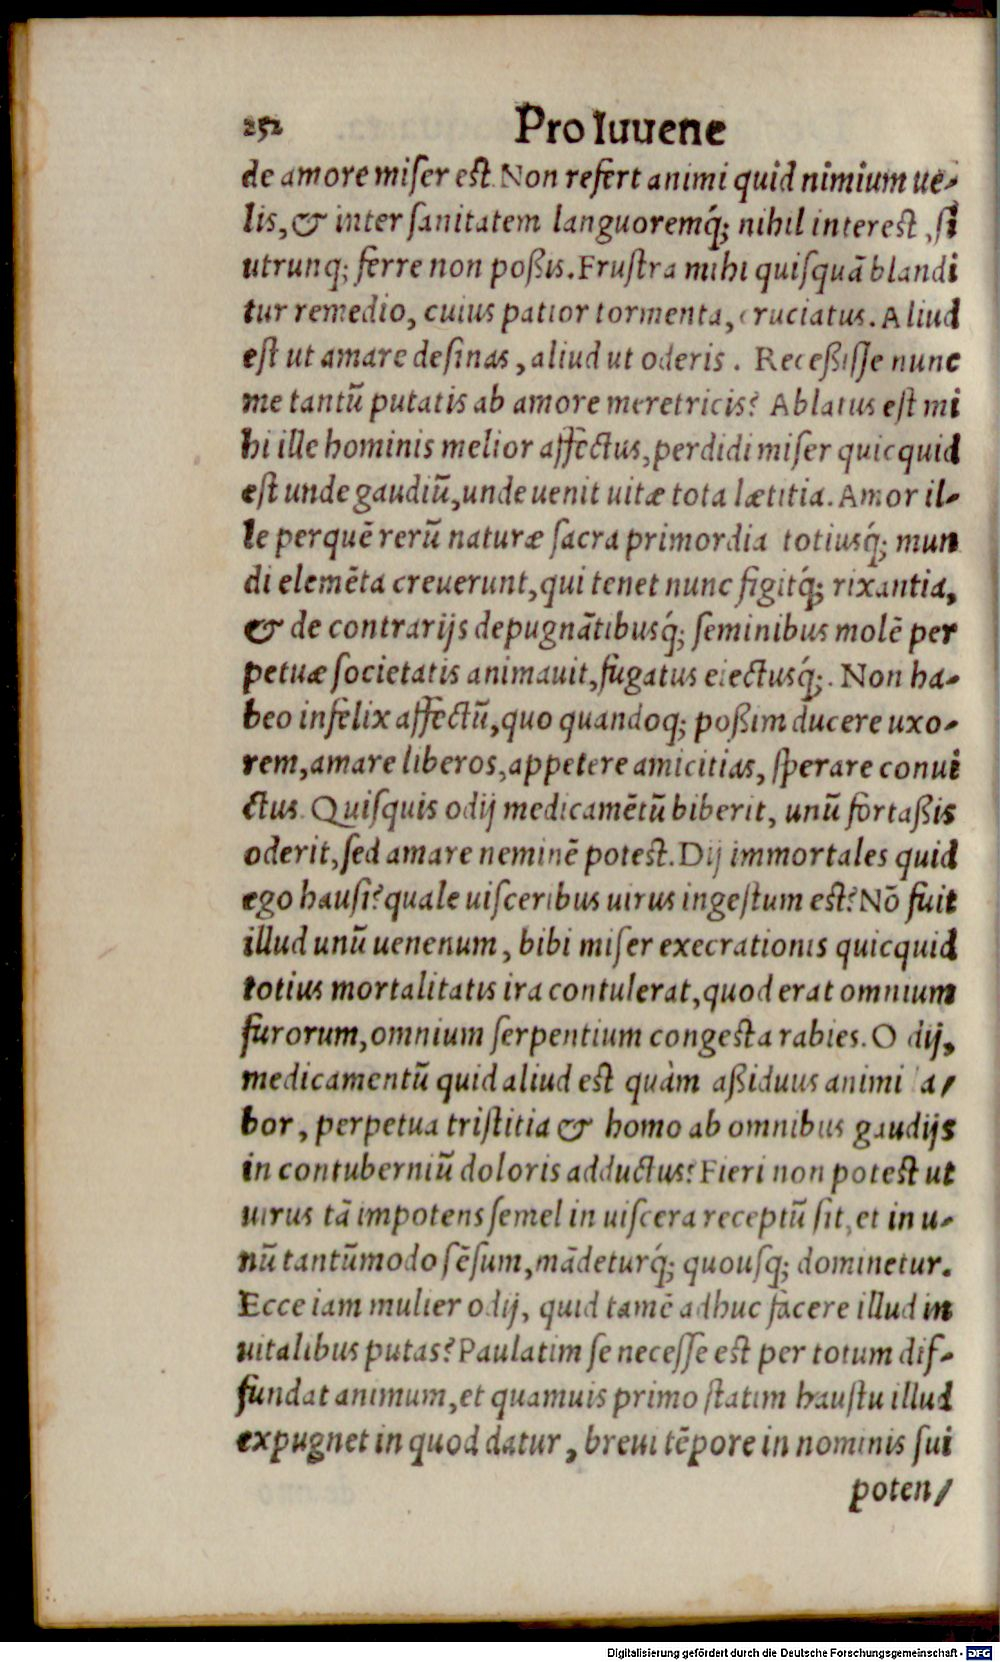 252 Pro Iuuene
de amore miſer eſt. Non refert animi quid nimium ue-
lis, & inter ſanitatem languoremq́; nihil intereſt, ſi
utrunq; ferre non poßis. Fruſtra mihi quiſquā blandi
tur remedio, cuius patior tormenta, cruciatus. Aliud
eſt ut amare deſinas, aliud ut oderis. Receßiſſe nunc
me tantū putatis ab amore meretricis? Ablatus eſt mi
hi ille hominis melior affectus, perdidi miſer quicquid
eſt unde gaudiū, unde uenit uitæ tota lætitia. Amor il-
le per quē rerū naturæ ſacra primordia totiusq́; mun
di elemēta creuerunt, qui tenet nunc figitq́; rixantia,
& de contrarijs depugnātibusq́; ſeminibus molē per
petuæ ſocietatis animauit, fugatus eiectusq́;. Non ha-
beo infelix affectū, quo quandoq; poßim ducere uxo-
rem, amare liberos, appetere amicitias, ſperare conui
ctus. Quiſquis odij medicamētū biberit, unū fortaßis
oderit, ſed amare neminē poteſt. Dij immortales quid
ego hauſi? quale uiſceribus uirus ingeſtum eſt? Nō fuit
illud unū uenenum, bibi miſer execrationis quicquid
totius mortalitatis ira contulerat, quod erat omnium
furorum, omnium ſerpentium congeſta rabies. O dij,
medicamentū quid aliud eſt quàm aßiduus animi la/
bor, perpetua triſtitia & homo ab omnibus gaudijs
in contuberniū doloris adductus? Fieri non poteſt ut
uirus tā impotens ſemel in uiſcera receptū ſit, et in u-
nū tantūmodo ſēſum, mādeturq́; quouſq; dominetur.
Ecce iam mulier odij, quid tamē adhuc facere illud in
uitalibus putas? Paulatim ſe neceſſe eſt per totum dif-
fundat animum, et quamuis primo ſtatim hauſtu illud
expugnet in quod datur, breui tēpore in nominis ſui
poten/
Digitalisierung gefördert durch die Deutsche Forschungsgemeinschaft - DFG